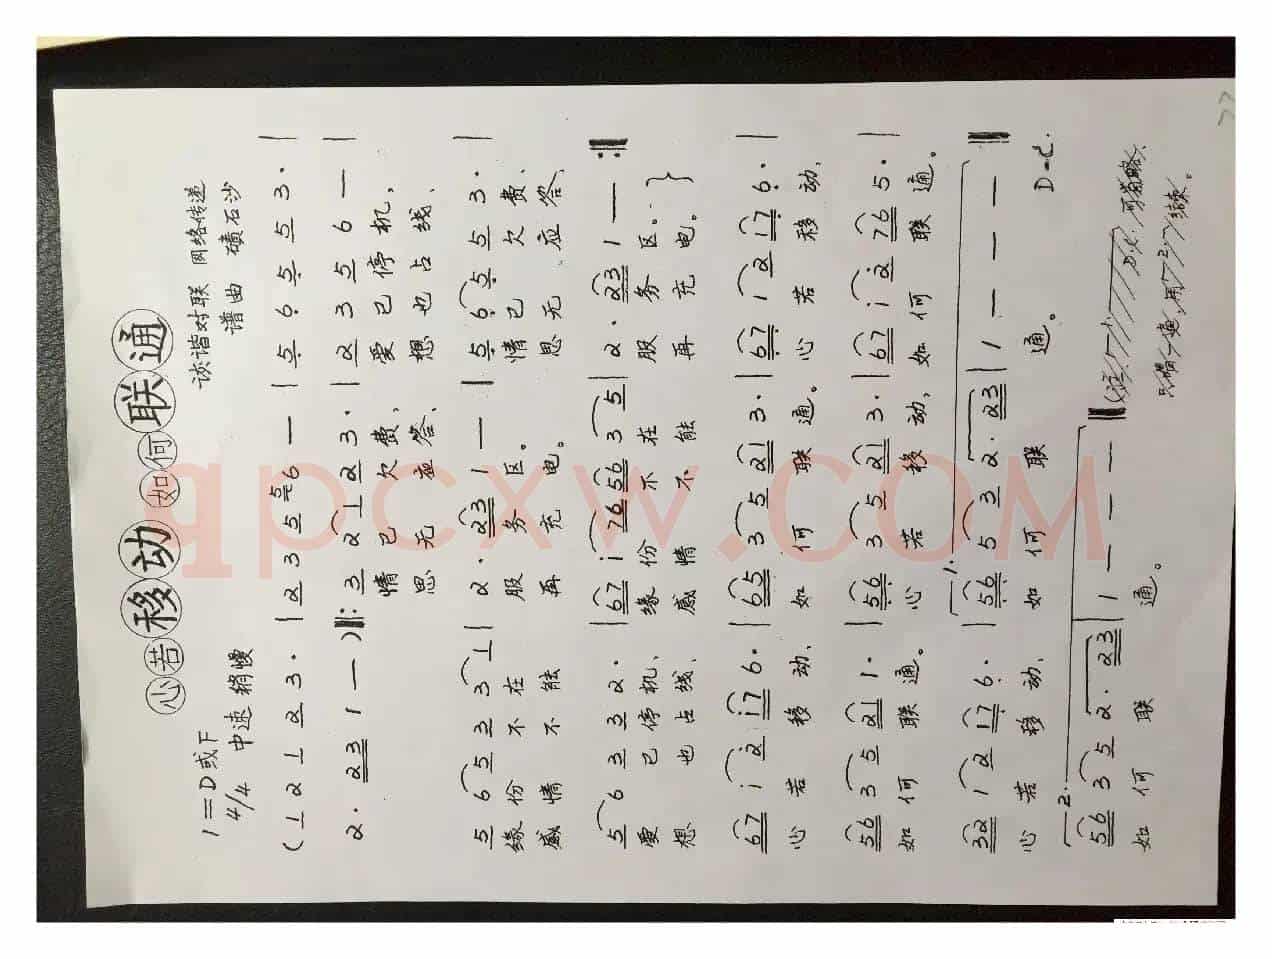 心若移动 如何联通
1=D或F 诙谐对联 网络传递
4/4 中速 稍慢 谱曲 碛石沙
(1 2 1 2 3· | 2 3 5 6 — | 5 6 5 5 3· |
2· 23 1 — )‖: 3 2 1 2 3· | 2 3 5 6 — |
情 已 欠 费、 爱 已 停 机，
思 无 应 答、 想 也 占 线、
5 6 5 3 3 1 | 2· 23 1 — | 5 6 5 5 3· |
缘 份 不 在 服 务 区。 情 已 欠 费、
感 情 不 能 再 充 电。 思 无 应 答、
5 6 3 3 2· | 67 i 76 56 3 5 | 2· 23 1 — :‖
爱 已 停 机、 缘 份 不 在 服 务 区。
想 也 占 线、 感 情 不 能 再 充 电。 }
67 i 2 i7 6· | 65 3 5 21 3· | 67 1 2 17 6· |
心 若 移 动、 如 何 联 通。 心 若 移 动、
56 3 5 21 1· | 56 3 5 21 3· | 67 i 2 76 5· |
如 何 联 通。 心 若 移 动， 如 何 联 通。
1.
32 1 2 17 6· | 56 5 3 2· 23 | 1 — — — ‖
心 若 移 动、 如 何 联 通。 D·C.
2.
56 3 5 2· 23 | 1 — — — ‖
如 何 联 通。
qpcxw.COM